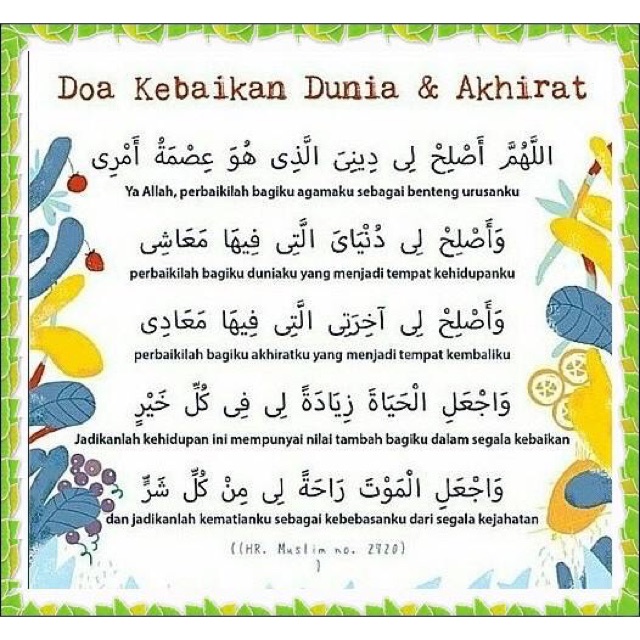 Doa Kebaikan Dunia & Akhirat
اللَّهُمَّ أَصْلِحْ لِى دِينِىَ الَّذِى هُوَ عِصْمَةُ أَمْرِى
Ya Allah, perbaikilah bagiku agamaku sebagai benteng urusanku
وَأَصْلِحْ لِى دُنْيَاىَ الَّتِى فِيهَا مَعَاشِى
perbaikilah bagiku duniaku yang menjadi tempat kehidupanku
وَأَصْلِحْ لِى آخِرَتِى الَّتِى فِيهَا مَعَادِى
perbaikilah bagiku akhiratku yang menjadi tempat kembaliku
وَاجْعَلِ الْحَيَاةَ زِيَادَةً لِى فِى كُلِّ خَيْرٍ
Jadikanlah kehidupan ini mempunyai nilai tambah bagiku dalam segala kebaikan
وَاجْعَلِ الْمَوْتَ رَاحَةً لِى مِنْ كُلِّ شَرٍّ
dan jadikanlah kematianku sebagai kebebasanku dari segala kejahatan
((HR. Muslim no. 2720)
)